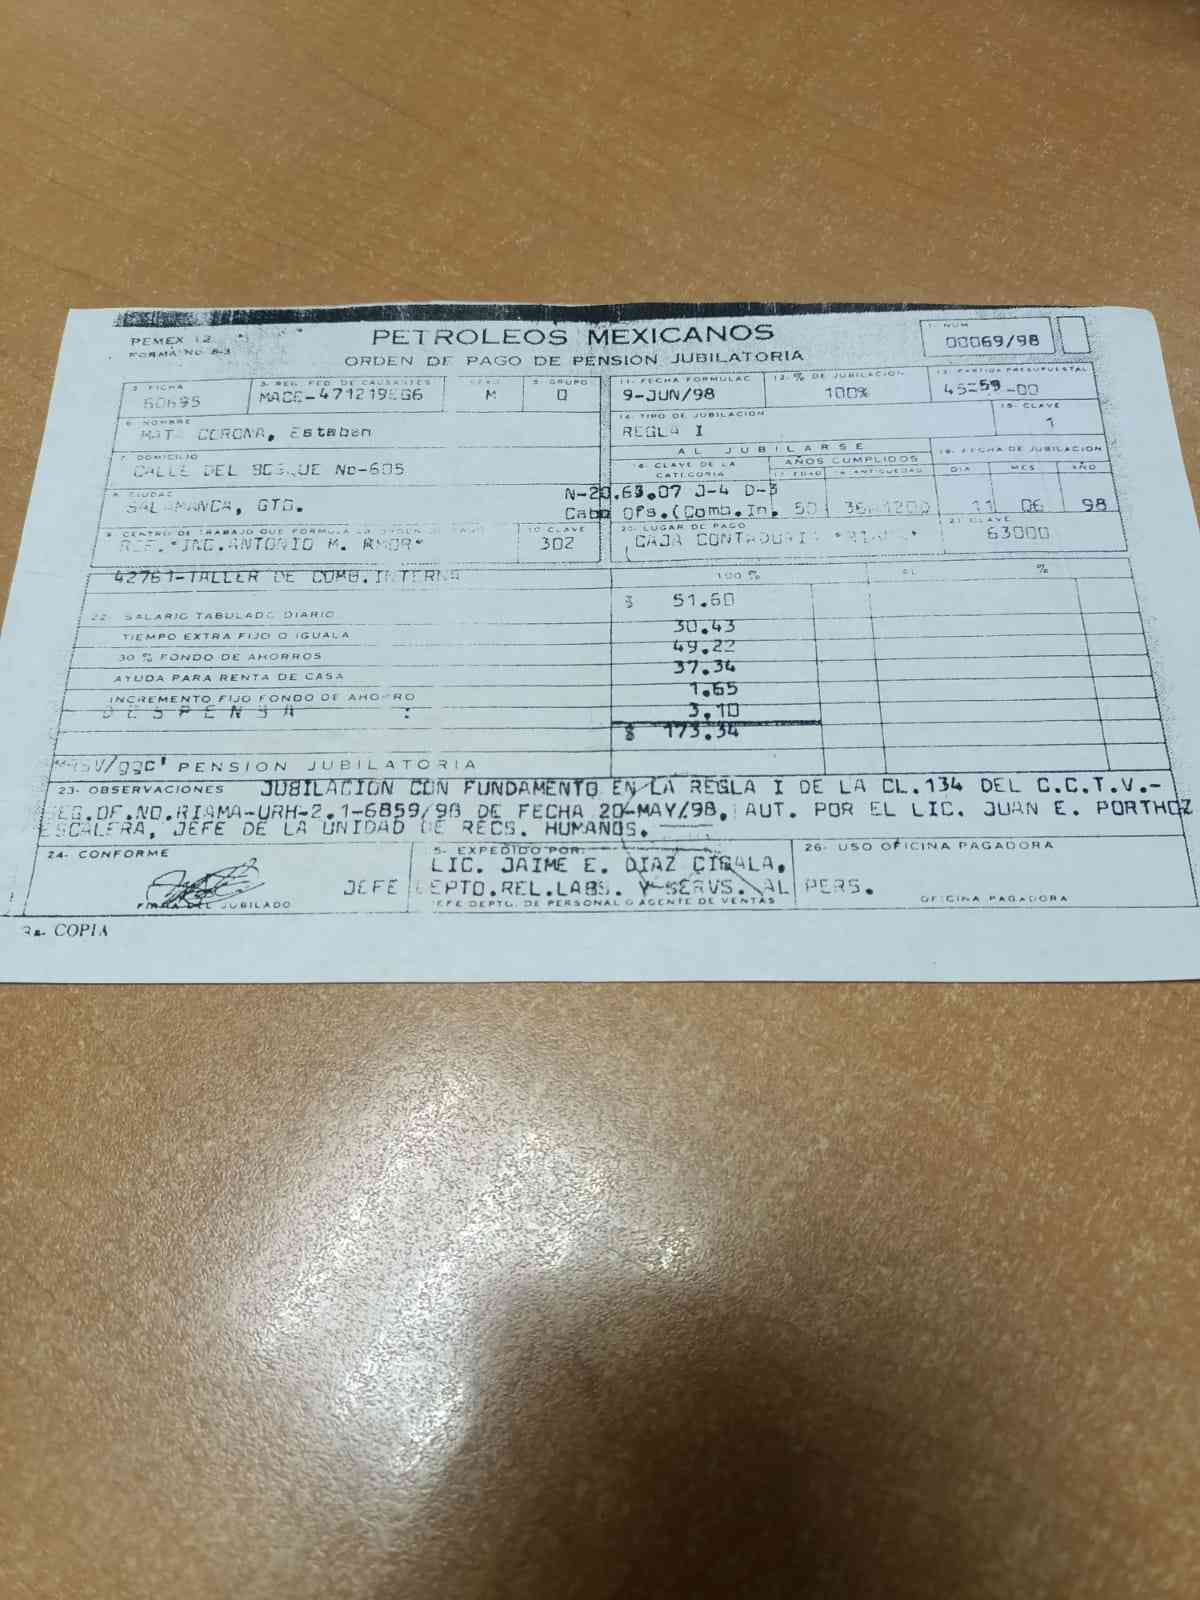 PEMEX 12
FORMA No 8-3
PETROLEOS MEXICANOS
ORDEN DE PAGO DE PENSION JUBILATORIA
1- NUM
00069/98
2 FICHA
3- REG. FED. DE CAUSANTES
MACE-471219EG6
M
5- GRUPO
0
11- FECHA FORMULAC
9-JUN/98
12- % DE JUBILACION
100%
13- PARTIDA PRESUPUESTAL
6 NOMBRE
MATA CORONA, Esteban
14- TIPO DE JUBILACION
REGLA I
15- CLAVE
1
7- DOMICILIO
CALLE DEL BOSQUE No-605
AL JUBILARSE
16- CLAVE DE LA CATEGORIA
AÑOS CUMPLIDOS
17- EDAD
18- ANTIGUEDAD
19- FECHA DE JUBILACION
DIA MES AÑO
8 CIUDAD
SALAMANCA, GTO.
N-20.63.07 J-4 D-3
Cabo Ofs.(Comb.In. 50
11 06 98
9- CENTRO DE TRABAJO QUE FORMULA LA ORDEN DE PAGO
REF."ING.ANTONIO M. AMOR"
10- CLAVE
302
20- LUGAR DE PAGO
CAJA CONTADURIA "RIAMA"
21- CLAVE
63000
42761-TALLER DE COMB.INTERNA
100 %
AL %
22- SALARIO TABULADO DIARIO $ 51.60
TIEMPO EXTRA FIJO O IGUALA 30.43
30 % FONDO DE AHORROS 49.22
AYUDA PARA RENTA DE CASA 37.34
INCREMENTO FIJO FONDO DE AHORRO 1.65
DESPENSA : 3.10
$ 173.34
PENSION JUBILATORIA
23- OBSERVACIONES JUBILACION CON FUNDAMENTO EN LA REGLA I DE LA CL.134 DEL C.C.T.V.-
SEG.OF.NO.RIAMA-URH-2.1-6859/98 DE FECHA 20-MAY/98, AUT. POR EL LIC. JUAN E. PORTHOZ
ESCALERA, JEFE DE LA UNIDAD DE RECS. HUMANOS.
24- CONFORME
FIRMA DEL JUBILADO
5- EXPEDIDO POR:
LIC. JAIME E. DIAZ CIGALA.
JEFE DEPTO.REL.LABS. Y SERVS. AL PERS.
JEFE DEPTO. DE PERSONAL O AGENTE DE VENTAS
26- USO OFICINA PAGADORA
OFICINA PAGADORA
COPIA